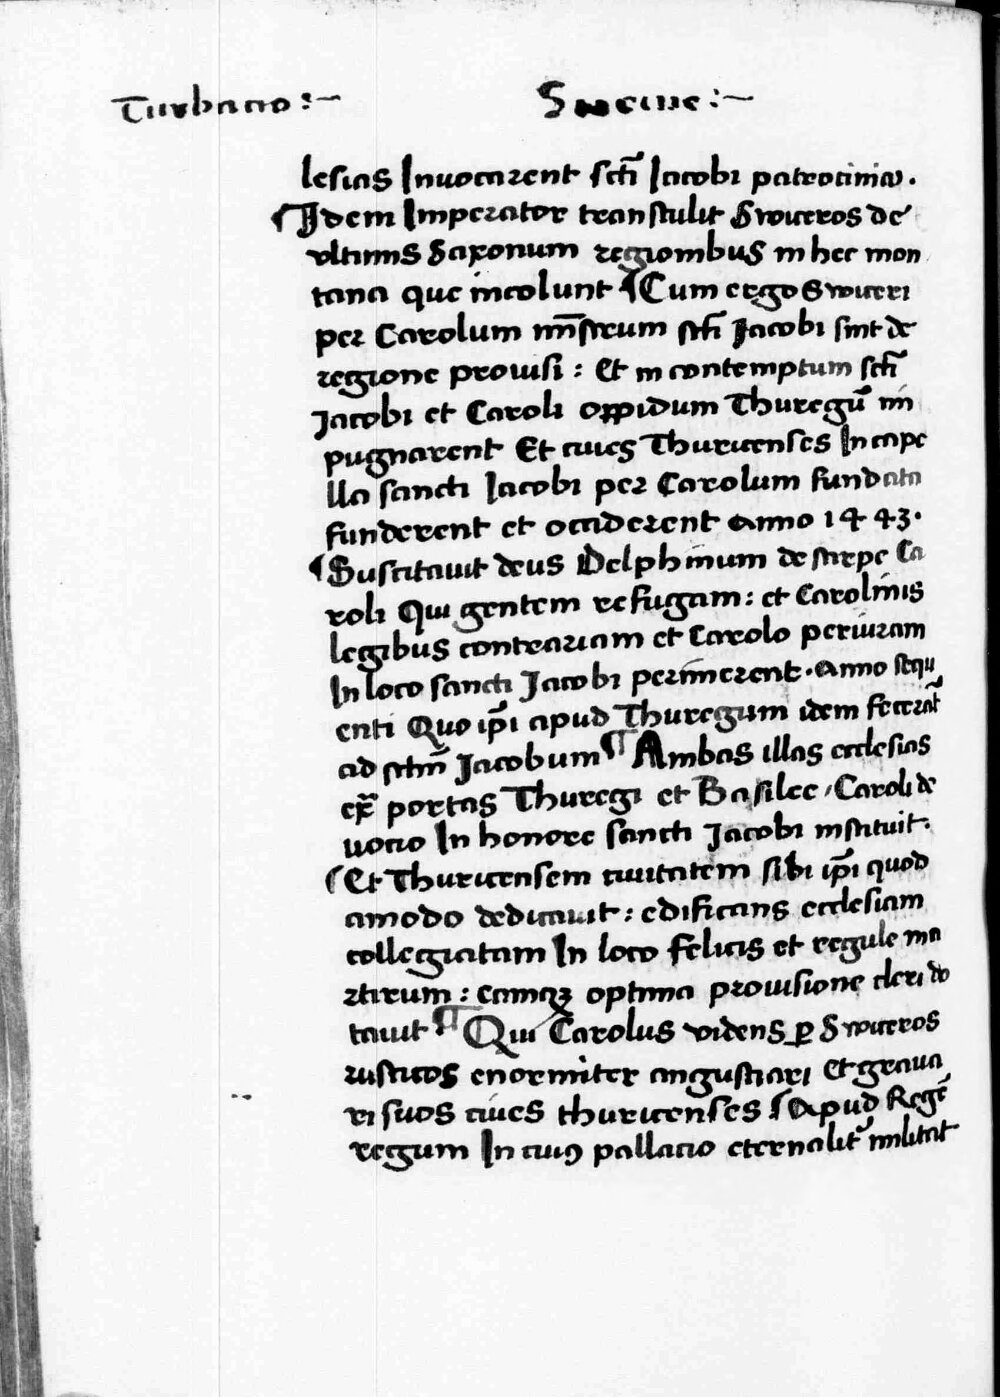 Turbacio :~ Sweciie :~
lesias Invocarent scti Jacobi patrocinia .
¶ Idem Imperator transtulit Swiceros de
ultimis Saxonum regionibus in hec mon
tana que incolunt ¶ Cum ergo Swiceri
per Carolumministrum scti Jacobi sint de
regione provisi : Et in contemptum scti
Jacobi et Caroli oppidum Thuregu im
pugnarent Et cives Thuricenses In cape
lla sancti Jacobi per Carolum fundata
funderent et occiderent Anno 1443 .
¶ Suscitavit deus Delphinum de stirpe Ca
roli Qui gentem refugam : et Carolinis
legibus contrariam et Carolo periuram
In loco sancti Jacobi perimerent . Anno sequ
enti Quo ipi apud Thuregum idem fecerat
ad sctm Jacobum ¶ Ambas illas ecclesias
ex portas Thuregi et Basilee , Caroli de
vocio In honore sancti Jacobi instituit .
¶ Et Thuricensem civitatem sibi ipi quod
amodo dedicavit : edificans ecclesiam
collegiatam In loco felicis et regule ma
rtirum : eamqz optima provisione cleri do
tavit ¶ Qui Carolus videns p Swiceros
rusticos enormiter angustiari Et grava
ri suos cives thuricenses ¶ Apud Rege
regum In cui9 pallacio eternalit militat